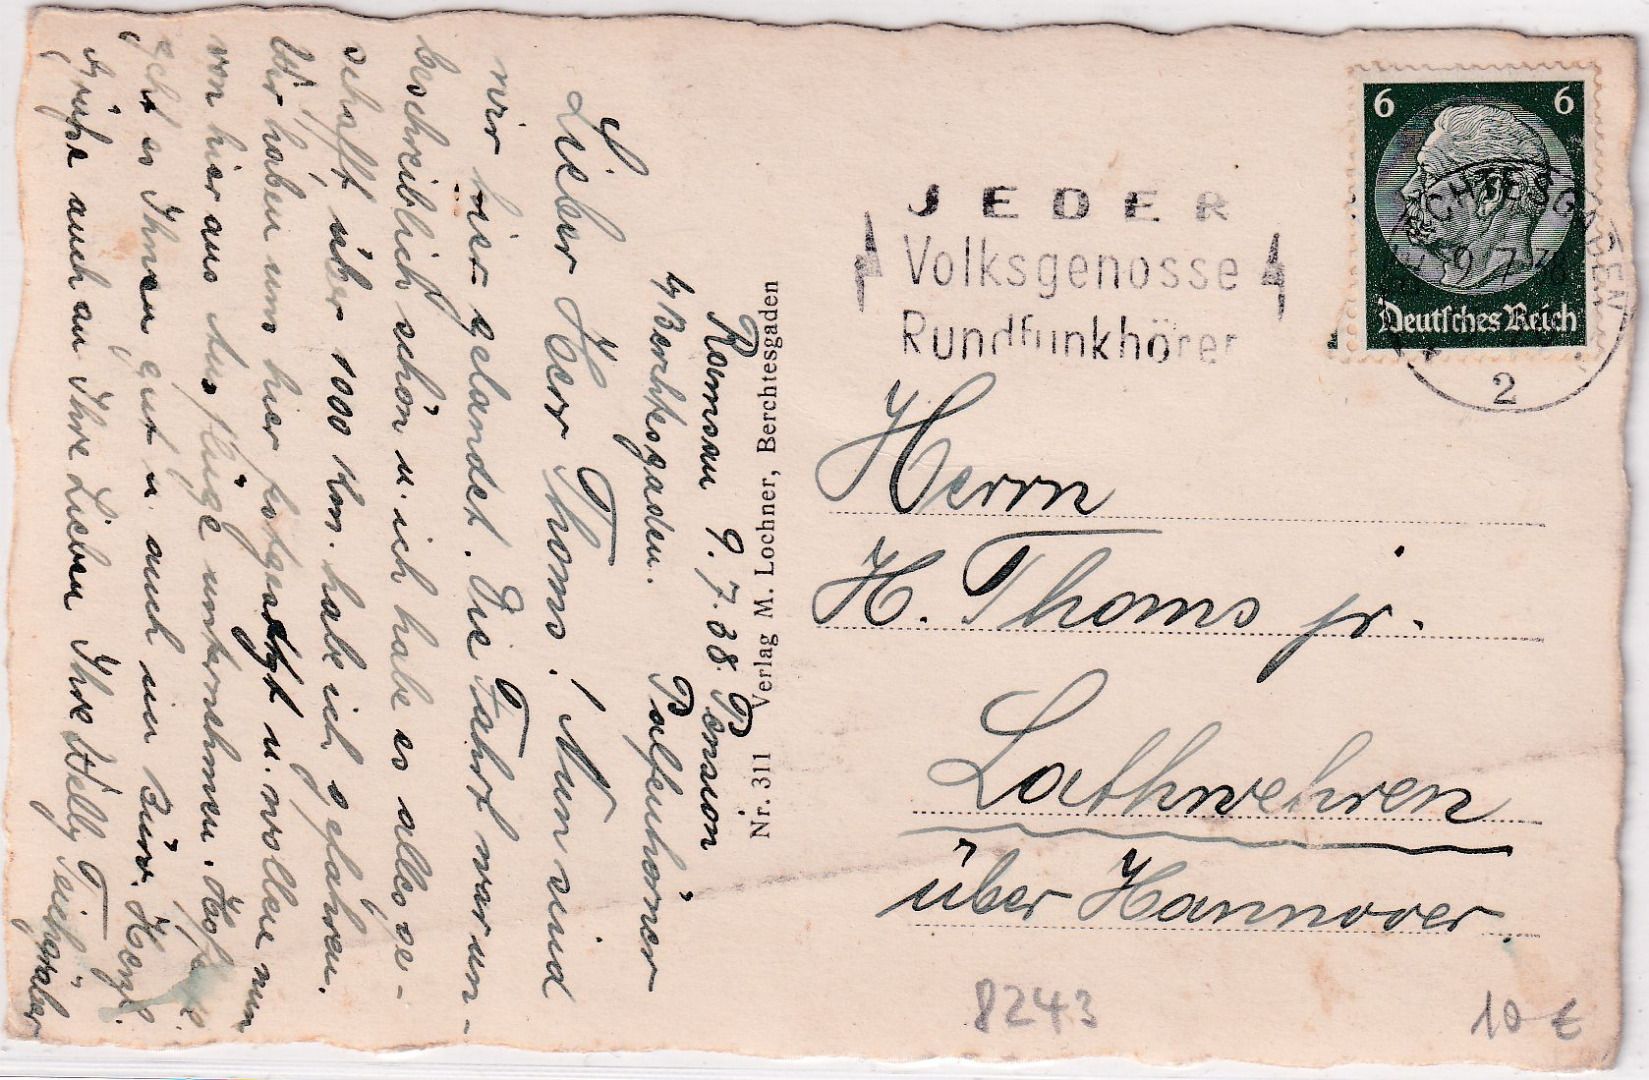 Ramsau 9.7.38. Pension
b/Berchtesgaden. Palfenhörner
Lieber Herr Thoms! Nun sind
wir hier gelandet. Die Fahrt war un-
beschreiblich schön u. ich habe es alles ge-
schafft, über 1000 km. habe ich gefahren.
Wir haben uns hier festgesetzt u. wollen nun
von hier aus Ausflüge unternehmen. Hoffentl.
geht es Ihnen gut u. auch im Büro. Herzl.
Grüße auch an Ihre Lieben Ihre Welly Teichgräber
Nr. 311 Verlag M. Lochner, Berchtesgaden
JEDER
Volksgenosse
Rundfunkhörer
6 6
Deutsches Reich
BERCHTESGADEN
9 7 38
2
Herrn
H. Thoms jr.
Lathwehren
über Hannover.
8243
10 €